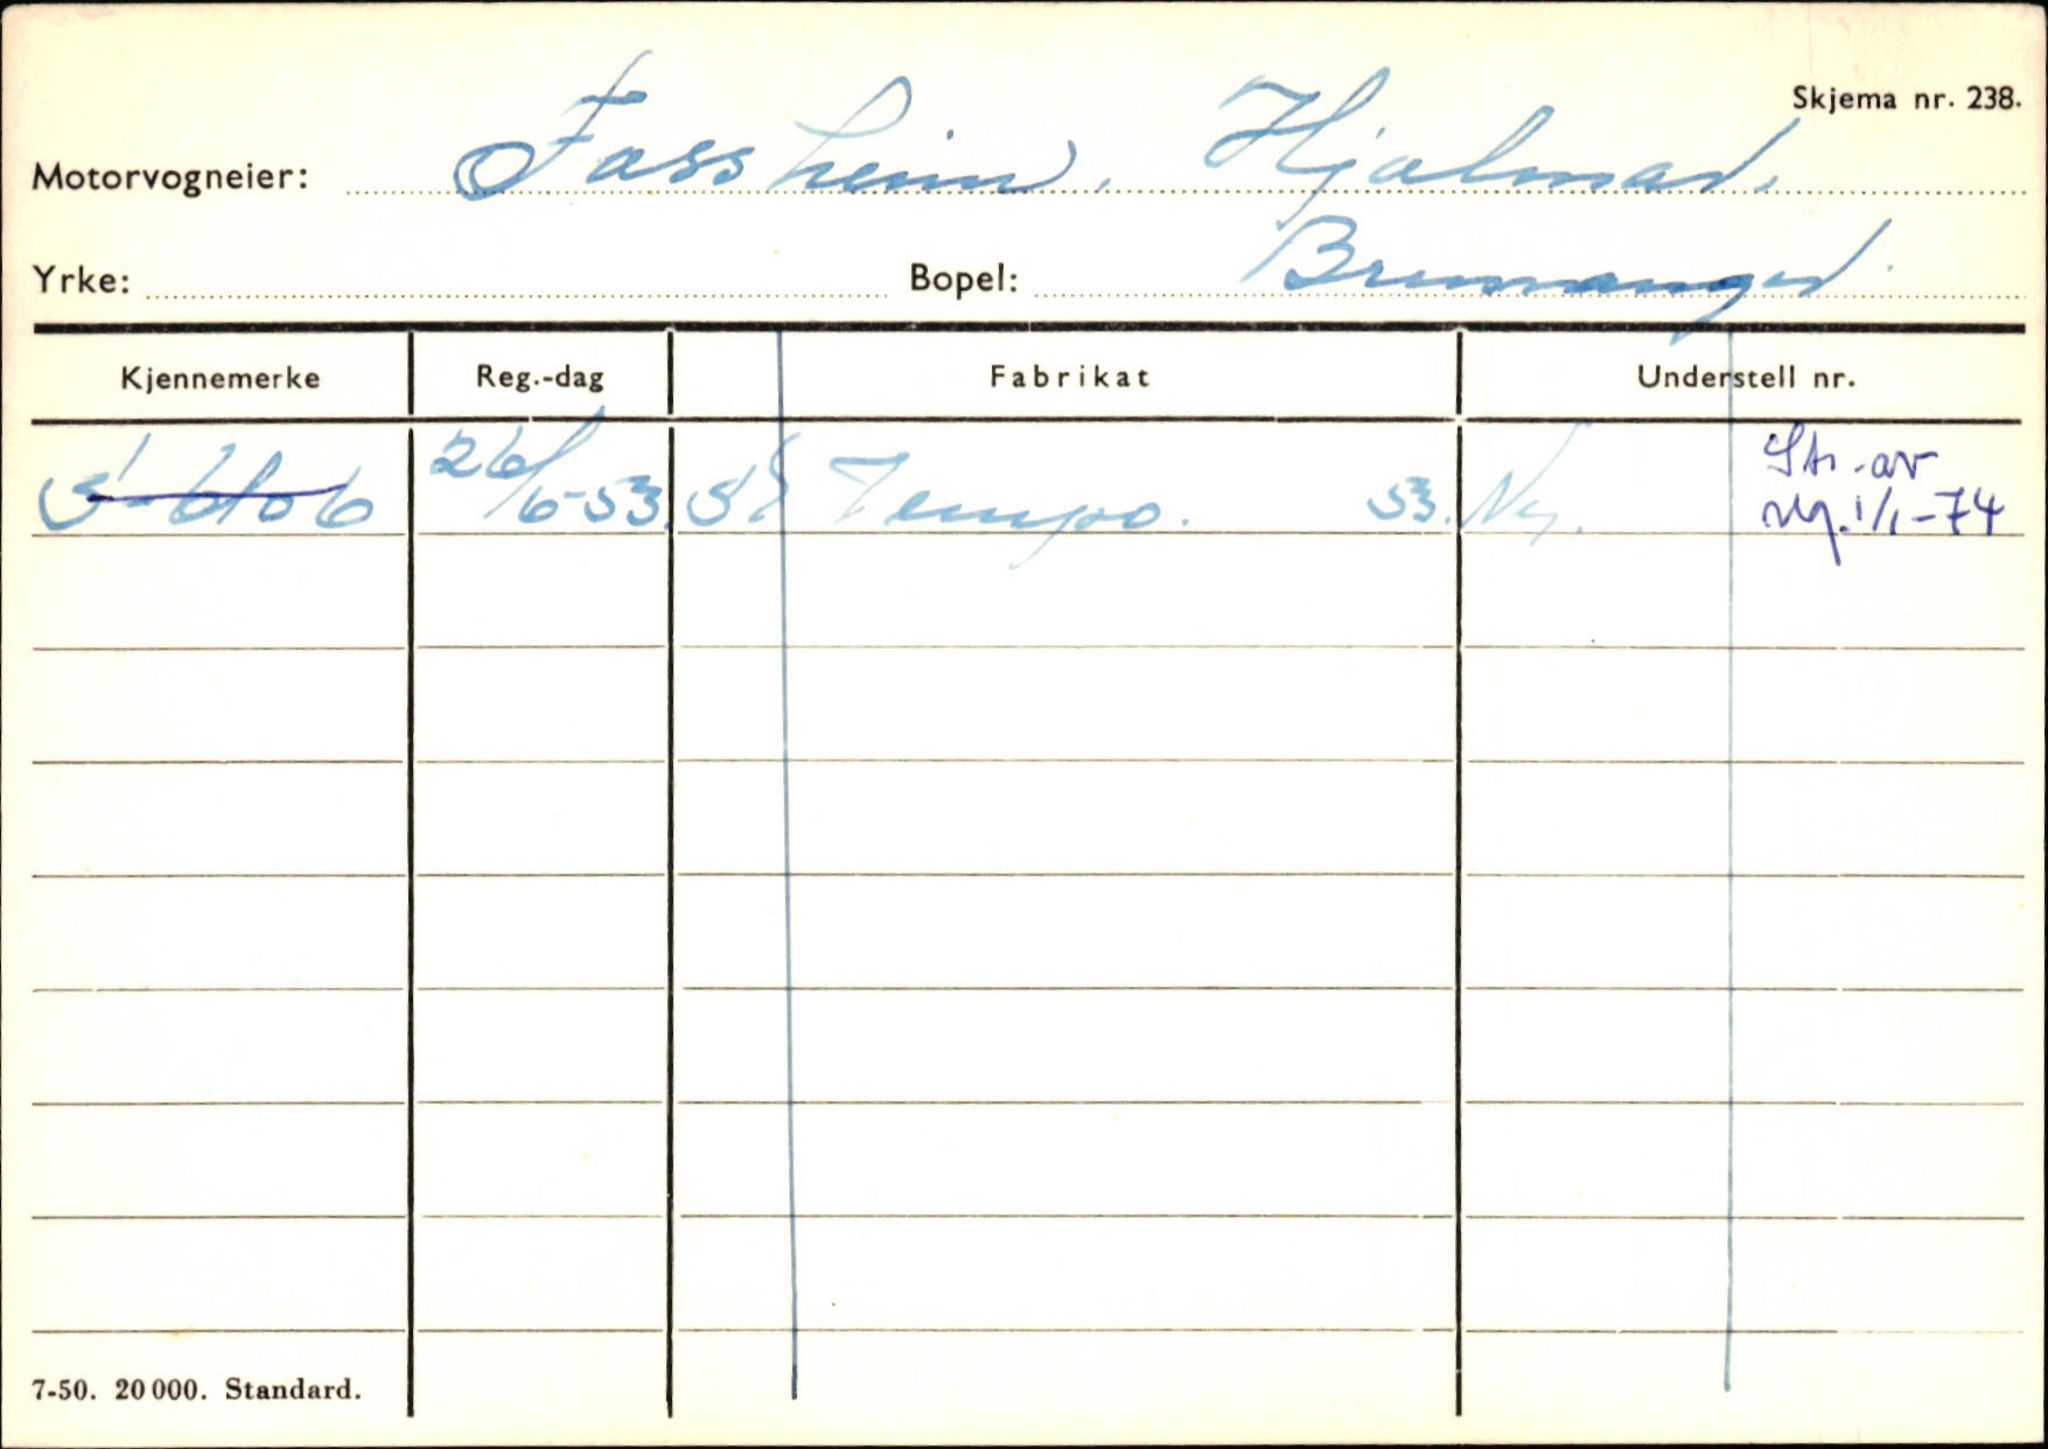 Skjema nr. 238.
Motorvogneier: Fossheim, Hjalmar.
Yrke: Bopel: Bremanger.
Kjennemerke Reg.-dag Fabrikat Understell nr.
26/6-53. Tempo. 53. Ny. Str. av
reg. 1/1-74
7-50. 20 000. Standard.